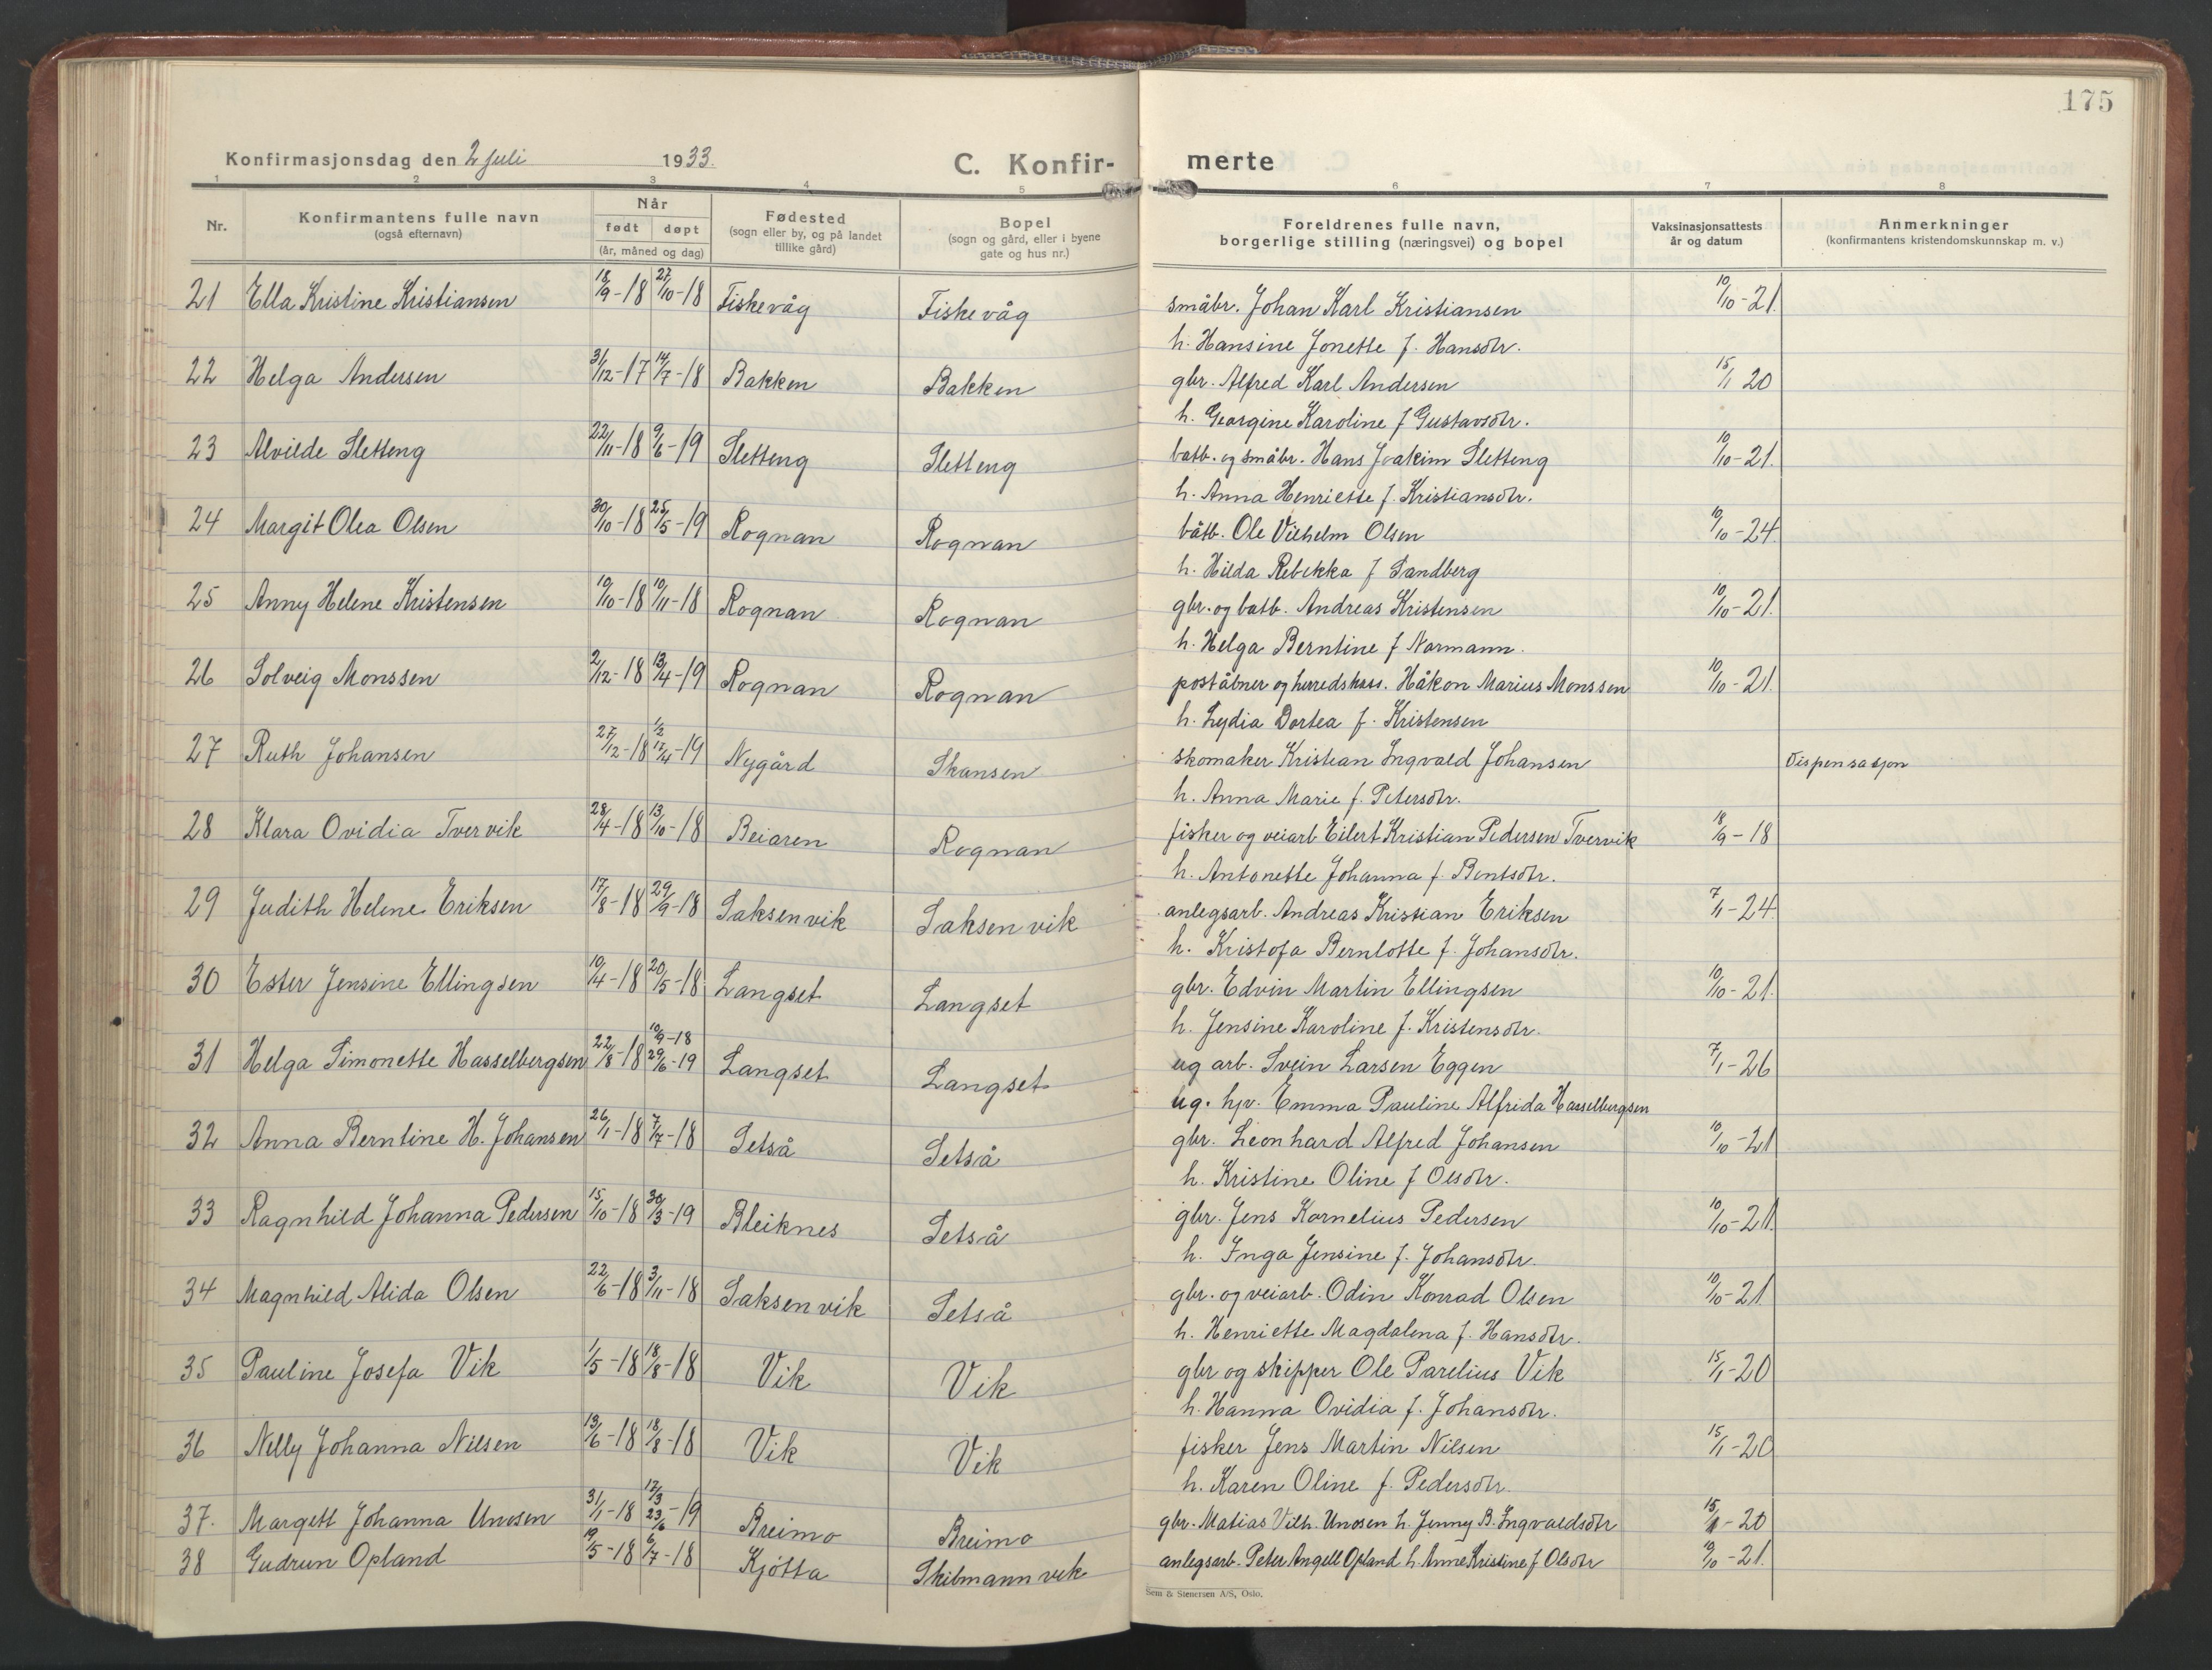 175
Konfirmasjonsdag den 2 juli 1933.
C. Konfir- merte
1 2 3 4 5 6 7 8
Nr. Konfirmantens fulle navn (også efternavn) Når født døpt (år, måned og dag) Fødested (sogn eller by, og på landet tillike gård) Bopel (sogn og gård, eller i byene gate og hus nr.) Foreldrenes fulle navn, borgerlige stilling (næringsvei) og bopel Vaksinasjonsattests år og datum Anmerkninger (konfirmantens kristendomskunnskap m. v.)
21 Ella Kristine Kristiansen 18/9-18 27/10-18 Fiskevåg Fiskevåg småbr. Johan Karl Kristiansen 10/10-21.
h. Hansine Jonette f. Hansdtr.
22 Helga Andersen 31/12-17 14/7-18 Bakken Bakken gbr. Alfred Karl Andersen 15/1 20
h. Georgine Karoline f Gustavsdtr.
23 Alvilde Sletteng 22/11-18 9/6-19 Sletteng Sletteng batb. og småbr. Hans Joakim Sletteng 10/10-21.
h. Anna Henriette f. Kristiansdtr.
24 Margit Olea Olsen 30/10-18 25/5-19 Rognan Rognan båtb. Ole Vilhelm Olsen 10/10-24
h. Hilda Rebekka f Sandberg
25 Anny Helene Kristensen 10/10-18 10/11-18 Rognan Rognan gbr. og batb. Andreas Kristensen 10/10-21.
h. Helga Berntine f Normann.
26 Solveig Monssen 2/12-18 13/4-19 Rognan Rognan poståbner og herredskass. Håkon Marius Monssen 10/10-21.
h. Lydia Dortea f. Kristensen
27 Ruth Johansen 27/12-18 1/2 17/4-19 Nygård Skansen skomaker Kristian Ingvald Johansen Dispensasjon
h. Anna Marie f. Petersdtr.
28 Klara Ovidia Tvervik 28/4-18 13/10-18 Beiaren Rognan fisker og veiarb Eilert Kristian Pedersen Tvervik 18/9-18
h. Antonette Johanna f. Bentsdtr.
29 Judith Helene Eriksen 17/8-18 29/9-18 Saksenvik Saksenvik anlegsarb. Andreas Kristian Eriksen 7/1-24
h. Kristofa Bernlotte f. Johansdtr.
30 Ester Jensine Ellingsen 10/4-18 20/5-18 Langset Langset gbr. Edvin Martin Ellingsen 10/10-21.
h. Jensine Karoline f. Kristensdtr.
31 Helga Simonette Hasselbergsen 22/8-18 10/9-18 29/6-19 Langset Langset ug arb. Svein Larsen Eggen 7/1-26
ug. hjv. Emma Pauline Alfrida Hasselbergsen
32 Anna Berntine H. Johansen 26/1-18 7/7-18 Setså Setså gbr. Leonhard Alfred Johansen 10/10-21
h. Kristine Oline f Olsdtr.
33 Ragnhild Johanna Pedersen 15/10-18 30/3-19 Bleiknes Setså gbr. Jens Kornelius Pedersen 10/10-21.
h. Inga Jensine f. Johansdtr.
34 Magnhild Alida Olsen 22/6-18 3/11-18 Saksenvik Setså gbr. og veiarb. Odin Konrad Olsen 10/10-21
h. Henriette Magdalena f. Hansdtr.
35 Pauline Josefa Vik 1/5-18 18/8-18 Vik Vik gbr og skipper Ole Parelius Vik 15/1-20
h. Hanna Ovidia f. Johansdtr.
36 Nelly Johanna Nilsen 13/6-18 18/8-18 Vik Vik fisker Jens Martin Nilsen 15/1-20
h. Karen Oline f. Pedersdtr.
37. Margett Johanna Unosen 31/1-18 12/3 23/6-19 Breimo Breimo gbr. Matias Vilh. Unosen h. Jenny B. Ingvaldsdtr 15/1-20
38 Gudrun Opland 19/5-18 6/7-18 Kjøtta Skilmannvik anlegsarb. Peter Angell Opland h. Anne Kristine f Olsdtr 10/10-21.
Sem & Stenersen A/S, Oslo.